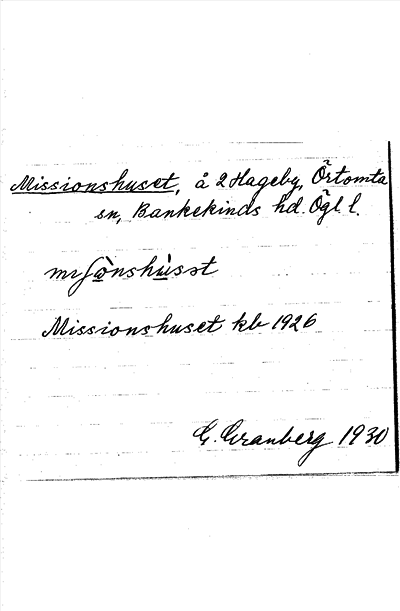 Missionshuset, å 2 Hageby, Örtomta
sn, Bankekinds hd. Ögl. l.
mıʃònshùsət
Missionshuset kb 1926
G. Granberg 1930